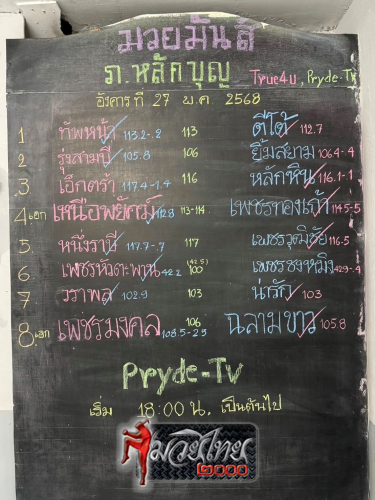 มวยมันส์
ภ.หลักบุญ True4u, Pryde-TV
อังคารที่ 27 พ.ค. 2568
1 ทัพหน้า 113.2-.2 113 ตีโต้ 112.7
2 รุ่งสามปี 105.8 106 ยิ้มสยาม 106.4-.4
3 เอ็กตร้า 117.4-1.4 116 หลักหิน 116.1-.1
4 เอก เหนือพยัคฆ์ 112.8 113-114 เพชรทองเก้า 114.5-.5
5 หนึ่งราชี 117.7-.7 117 เพชรวุฒิชัย 116.5
6 เพชรหัวตะพาน 42.2 (42.5) 100 เพชรชงหมิง 42.9-.4
7 วราพล 102.9 103 น่ารัก 103
8 เอก เพชรมงคล 108.5-2.5 106 ฉลามขาว 105.8
Pryde-TV
เริ่ม 18:00 น. เป็นต้นไป
มวยไทย
๒๐๐๐